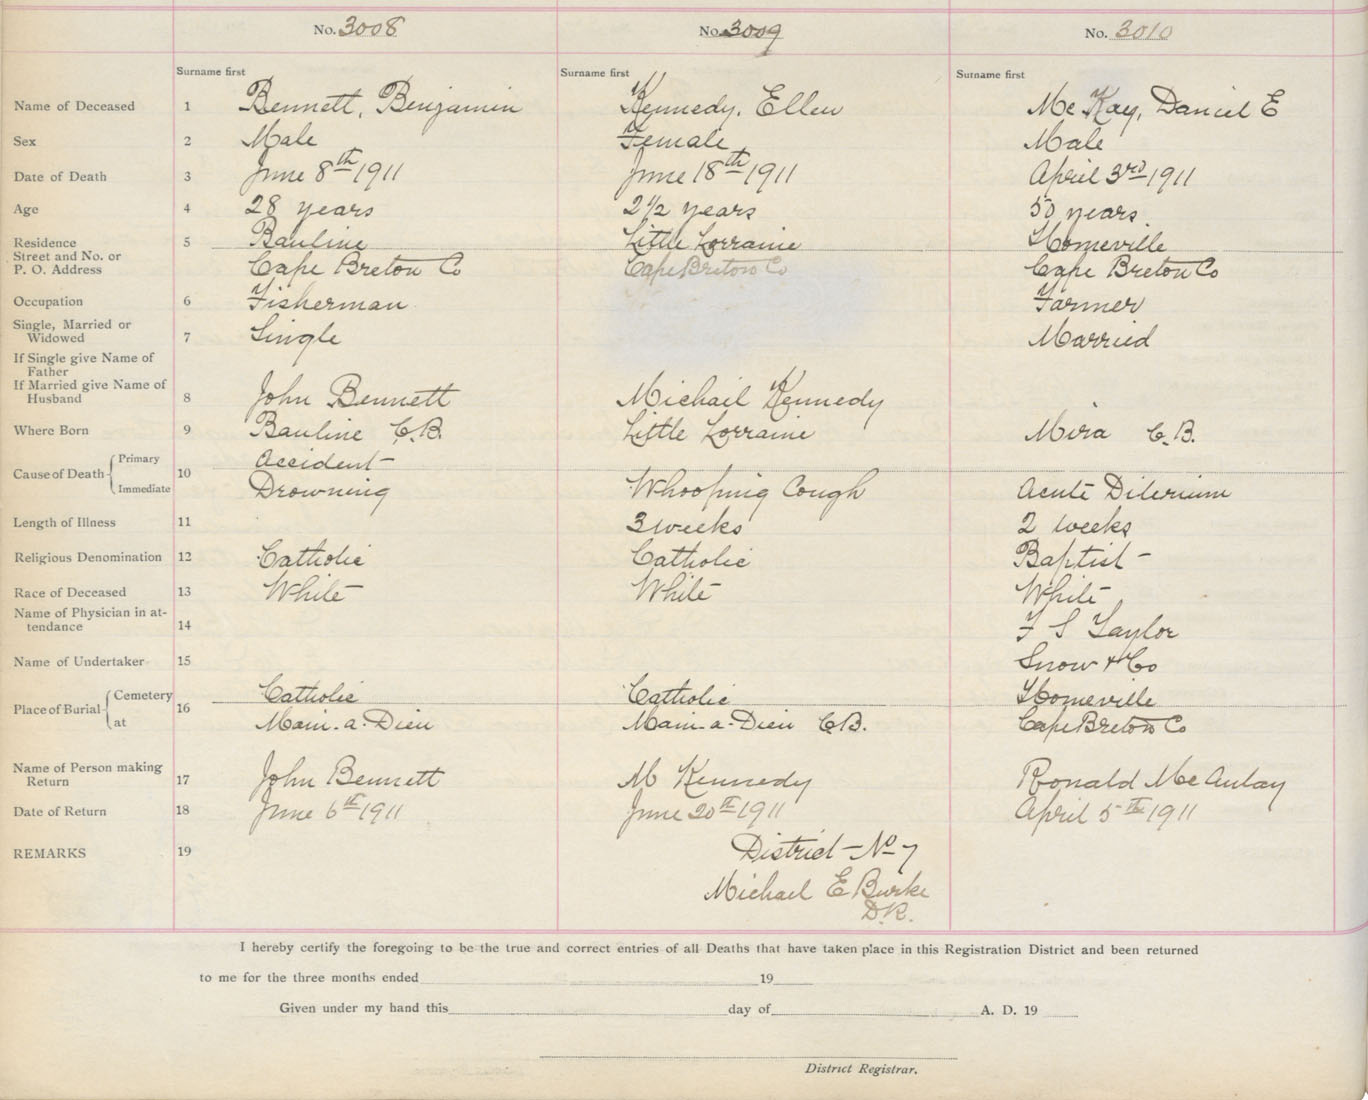 No. 3008 No. 3009 No. 3010
Surname first Surname first Surname first
Name of Deceased 1 Bennett, Benjamin Kennedy, Ellen McKay, Daniel E
Sex 2 Male Female Male
Date of Death 3 June 8th 1911 June 18th 1911 April 3rd 1911
Age 4 28 years 2 1/2 years 50 years
Residence 5 Bauline Little Lorraine Homeville
Street and No. or
P. O. Address Cape Breton Co Cape Breton Co Cape Breton Co
Occupation 6 Fisherman Farmer
Single, Married or
Widowed 7 Single Married
If Single give Name of
Father
If Married give Name of
Husband 8 John Bennett Michail Kennedy
Where Born 9 Bauline C.B. Little Lorraine Mira C.B.
Cause of Death Primary 10 Accident
Immediate Drowning Whooping Cough Acute Dilerium
Length of Illness 11 3 weeks 2 weeks
Religious Denomination 12 Catholic Catholic Baptist
Race of Deceased 13 White White White
Name of Physician in at-
tendance 14 F S Taylor
Name of Undertaker 15 Snow & Co
Place of Burial Cemetery 16 Catholic Catholic Homeville
at Main-a-Dieu Main-a-Dieu C.B. Cape Breton Co
Name of Person making
Return 17 John Bennett M Kennedy Ronald McAulay
Date of Return 18 June 6th 1911 June 20th 1911 April 5th 1911
REMARKS 19 District No 7
Michael E Burke
D.R.
I hereby certify the foregoing to be the true and correct entries of all Deaths that have taken place in this Registration District and been returned
to me for the three months ended 19
Given under my hand this day of A. D. 19
District Registrar.